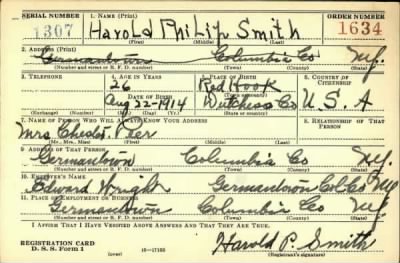 SERIAL NUMBER 1. NAME (Print) ORDER NUMBER
1307 Harold Philip Smith 1634
(First) (Middle) (Last)
2. ADDRESS (Print)
Germantown Columbia Co N.Y.
(Number and street or R. F. D. number) (Town) (County) (State)
3. TELEPHONE 4. AGE IN YEARS 5. PLACE OF BIRTH 6. COUNTRY OF CITIZENSHIP
26 Red Hook
DATE OF BIRTH (Town or county)
Aug 22-1914 Dutchess Co U.S.A
(Exchange) (Number) (Mo.) (Day) (Yr.) (State or country)
7. NAME OF PERSON WHO WILL ALWAYS KNOW YOUR ADDRESS 8. RELATIONSHIP OF THAT PERSON
Mrs Chester
(Mr., Mrs., Miss) (First) (Middle) (Last)
9. ADDRESS OF THAT PERSON
Germantown Columbia Co N.Y.
(Number and street or R. F. D. number) (Town) (County) (State)
10. EMPLOYER'S NAME
Edward Wright Germantown Col Co N.Y.
11. PLACE OF EMPLOYMENT OR BUSINESS
Germantown Columbia Co N.Y.
(Number and street or R. F. D. number) (Town) (County) (State)
I AFFIRM THAT I HAVE VERIFIED ABOVE ANSWERS AND THAT THEY ARE TRUE.
REGISTRATION CARD
D. S. S. Form 1 (over) 16—17105 Harold P. Smith
(Registrant's signature)